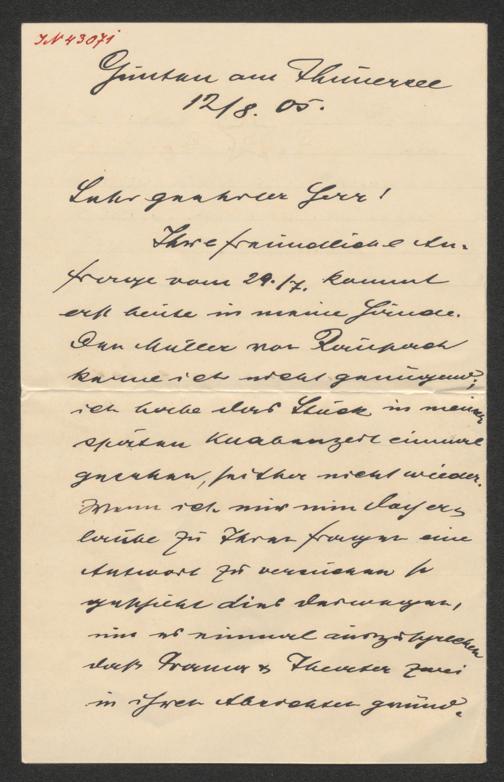 IN 43071
Gunten am Thunersee
12/8. 05.
Sehr geehrter Herr!
Ihre freundliche An-
frage vom 29./7. kommt
erst heute in meine Hände.
Den Müller von Raupach
kenne ich nicht genügend;
ich habe das Stück in meiner
späten Knabenzeit einmal
gesehen, seither nicht wieder.
Wenn ich mir nun doch er-
laube zu Ihren Fragen eine
Antwort zu versuchen so
geschieht dies deswegen,
um es einmal auszusprechen
daß Drama & Theater zwei
in ihren Absichten gründ-